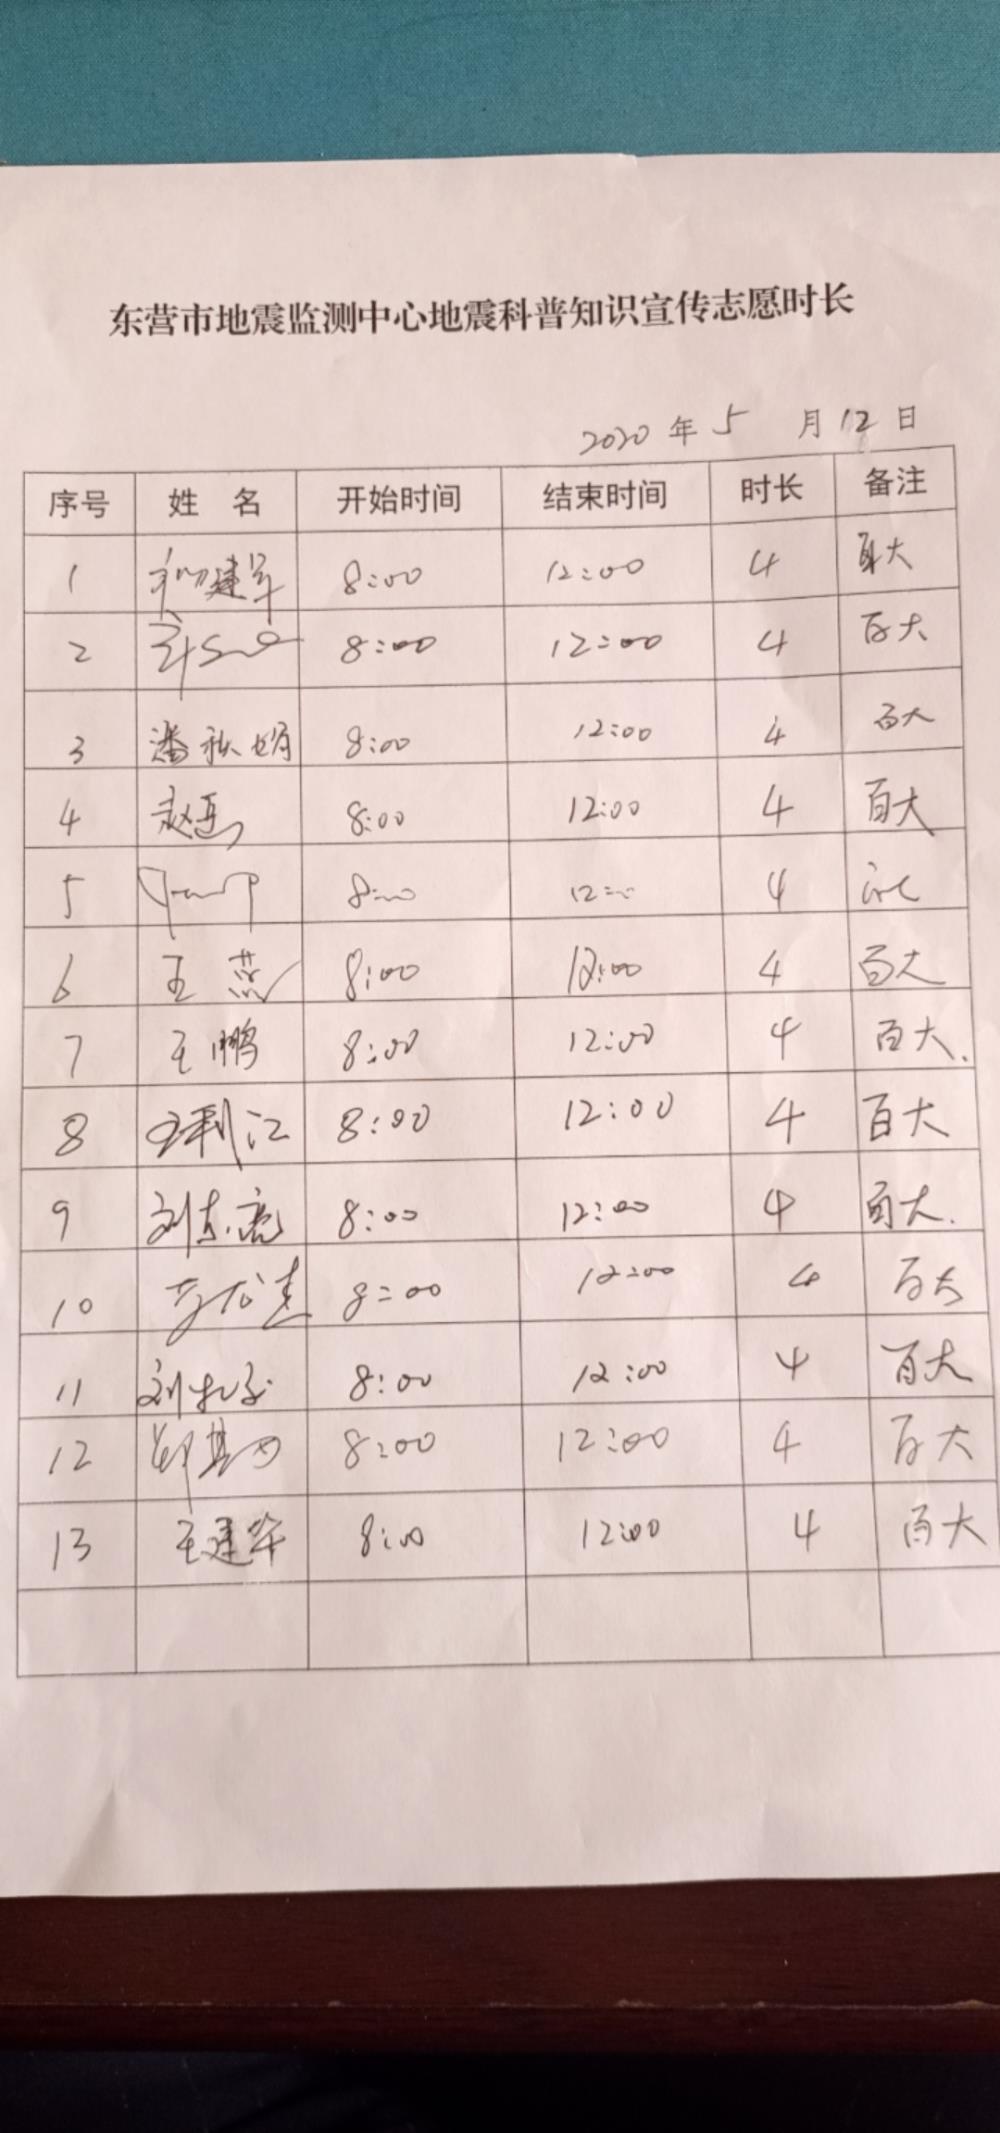 东营市地震监测中心地震科普知识宣传志愿时长
2020 年 5 月 12 日
序号 姓 名 开始时间 结束时间 时长 备注
1 8:00 12:00 4 百大
2 8:00 12:00 4 百大
3 潘秋娟 8:00 12:00 4 百大
4 8:00 12:00 4 百大
5 8:00 12:00 4
6 王燕 8:00 12:00 4 百大
7 王鹏 8:00 12:00 4 百大.
8 王利江 8:00 12:00 4 百大
9 刘东亮 8:00 12:00 4 百大.
10 8:00 12:00 4 百大
11 8:00 12:00 4 百大
12 8:00 12:00 4 百大
13 王建华 8:00 12:00 4 百大